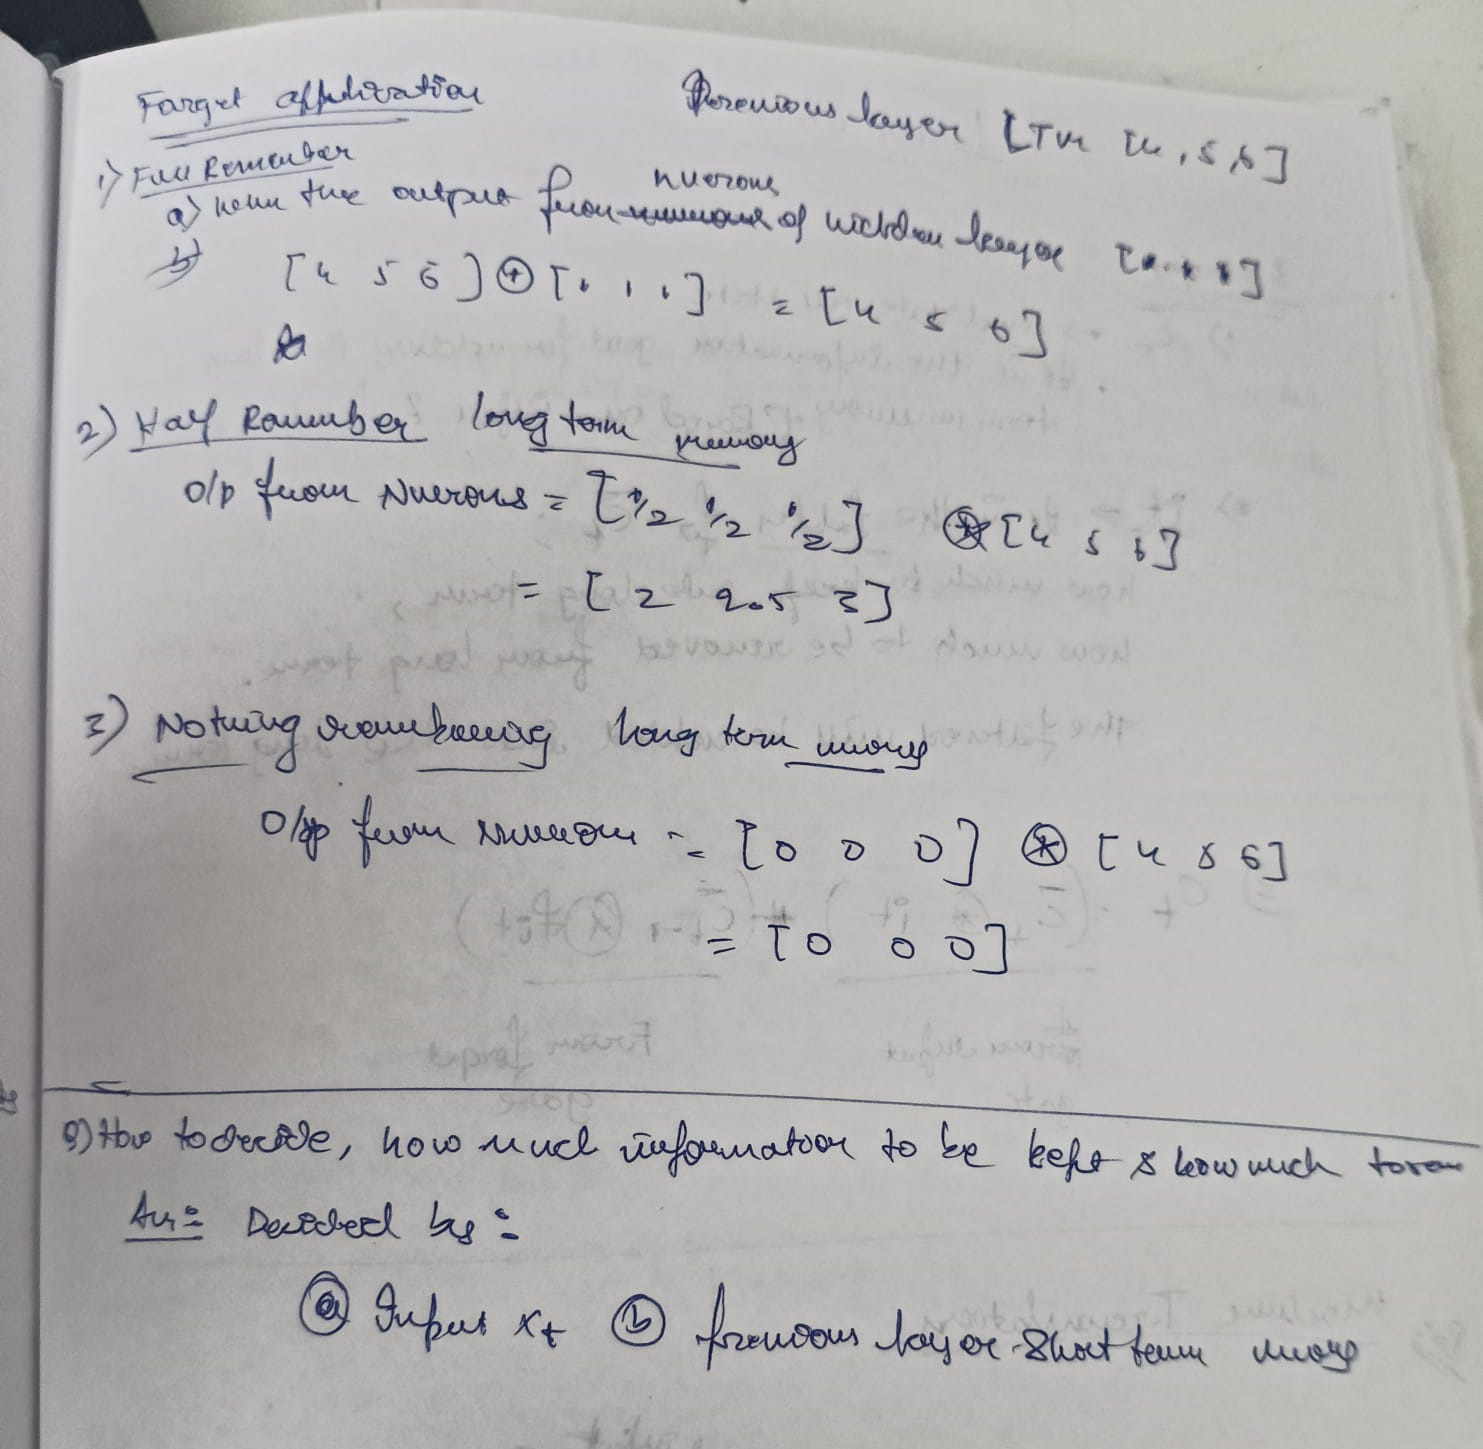 Forget application
Previous layer [LTM [4, 5, 6]
1) Full Remember
a) when the output from neurons of hidden layer [1 1 1]
b)
[4 5 6] ⊛ [1 1 1] = [4 5 6]
2) Half Remember long term memory
O/p from Nuerons = [1/2 1/2 1/2] ⊛ [4 5 6]
= [2 2.5 3]
3) Nothing remembering long term memory
O/p from Nuerons = [0 0 0] ⊛ [4 5 6]
= [0 0 0]
Q) How to decide, how much information to be kept & how much
Ans: Decided by:
(a) Input xt (b) previous layer short term memory